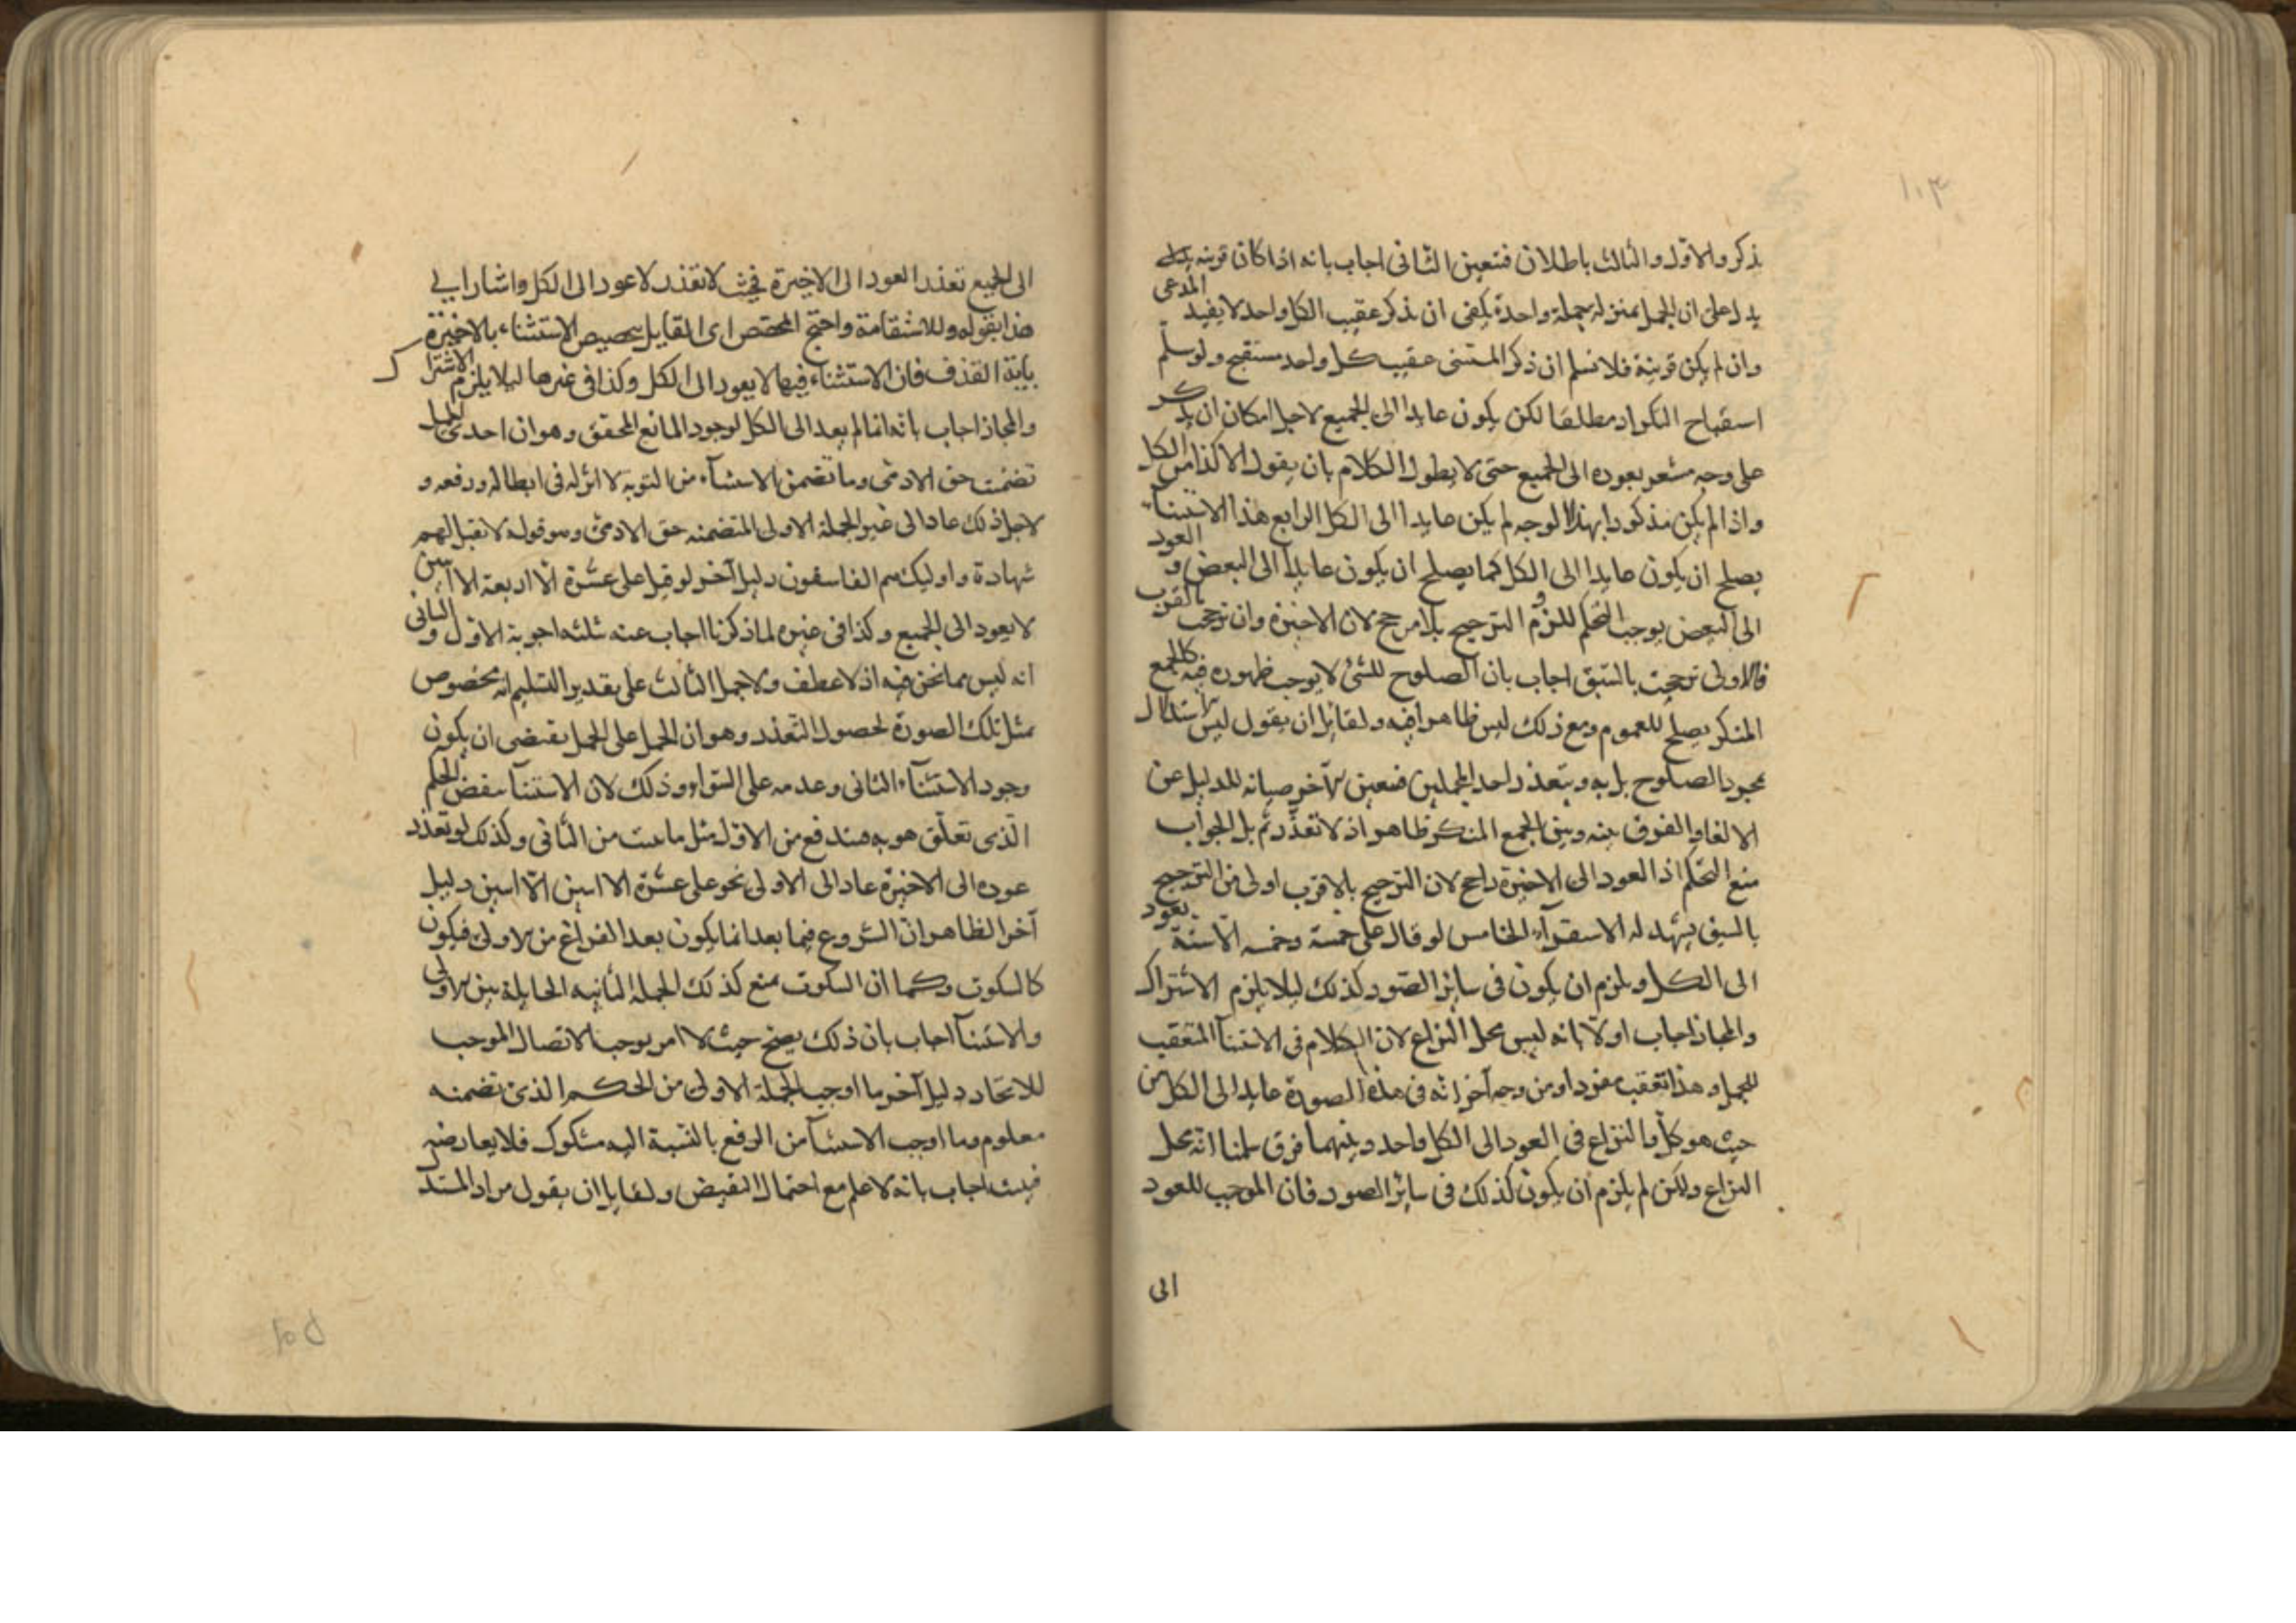 ١٠٣
ذكر والاول والثالث باطلان فتعين الثانى اجاب بانه اذا كان قرينه
يدل على ان الجمل بمنزلة جملة واحدة يكفى ان يذكر عقيب الكل واحد لا يفيد المدعى
وان لم يكن قرينة فلا نسلم ان ذكر المستثنى عقيب كل واحد مستقبح ولو سلم
استقباح التكرار مطلقا لكن يكون عايدا الى الجميع لاجل امكان ان يذكر
على وجه مشعر بعوده الى الجميع حتى لا يطول الكلام بان يقول الا كذا من الكل
واذا لم يكن مذكورا بهذا الوجه لم يكن عايدا الى الكل الرابع هذا الاستثناء
يصلح ان يكون عايدا الى الكل كما يصلح ان يكون عايدا الى البعض و العود
الى البعض يوجب التحكم للزوم الترجيح بلا مرجح لان الاخيرة وان ترجحت بالقرب
فالاولى ترجحت بالسبق اجاب بان الصلوح للشئ لا يوجب ظهوره فيه كالجمع
المنكر يصلح للعموم ومع ذلك ليس ظاهرا فيه ولقايل ان يقول ليس الاستدلال
بمجرد الصلوح بل به وبتعذر احد المحملين فتعين الآخر صيانه للدليل عن
الالغاء والفرق بينه وبين الجمع المنكر ظاهر اذ لا تعذر ثم بل الجواب
منع التحكم اذ العود الى الاخيرة راجح لان الترجيح بالاقرب اولى من الترجيح
بالسبق يشهد له الاستقراء الخامس لو قال على خمسة وخمسه الا ستة يعود
الى الكل ويلزم ان يكون فى سائر الصور كذلك ليلا يلزم الاشتراك
والمجاز اجاب اولا بانه ليس محل النزاع لان الكلام فى الاستثنا المتعقب
للجمل وهذا تعقب مفردا ومن وجه آخر انه فى هذه الصورة عايد الى الكل من
حيث هو كل والنزاع فى العود الى الكل واحد وبينهما فرق سلمنا انه محل
النزاع ولكن لم يلزم ان يكون كذلك فى سائر الصور فان الموجب للعود
الى
الى الجميع تعذر العود الى الاخيرة فحيث لا تعذر لا عود الى الكل واشار الى
هذا بقوله وللاستقامة واحتج المخصص اى القايل بتخصيص الاستثناء بالاخيرة
باية القذف فان الاستثناء فيها لا يعود الى الكل وكذا فى غيرها ليلا يلزم الاشتراك
والمجاز اجاب بانه انما لم يعد الى الكل لوجود المانع المحقق وهو ان احدى الجمل
تضمنت حق الادمى وما تضمن الاستثناء من التوبة لا اثر له فى ابطاله ورفعه و
لاجل ذلك عاد الى غير الجملة الاولى المتضمنه حق الادمى وهو قوله لا تقبل لهم
شهادة واوليك هم الفاسقون دليل آخر لو قيل على عشرة الا اربعة الا اثنين
لا يعود الى الجميع وكذا فى غيره لما ذكرنا اجاب عنه بثلثه اجوبة الاول والثانى
انه ليس مما نحن فيه اذ لا عطف ولا جمل الثالث على تقدير التسليم انه مخصوص
بمثل تلك الصورة لحصول التعذر وهو ان الحمل على الجمل يقتضى ان يكون
وجود الاستثناء الثانى وعدمه على السواء وذلك لان الاستثنا ينقض الحكم
الذى تعلق هو به فيندفع من الاول مثل ما ثبت من الثانى وكذلك لو تعذر
عوده الى الاخيرة عاد الى الاولى نحو على عشرة الا اثنين الا اثنين دليل
آخر الظاهر ان الشروع فيما بعد انما يكون بعد الفراغ من الاولى فيكون
كالسكوت وكما ان السكوت يمنع كذلك الجملة الثانيه الحايلة بين الاولى
والاستثنا اجاب بان ذلك يصح حيث لا امر يوجب الاتصال الموجب
للاتحاد دليل آخر ما اوجب الجملة الاولى من الحكم الذى تضمنه
معلوم وما اوجب الاستثنا من الرفع بالنسبة اليه مشكوك فلا يعارضه
فيثبت اجاب بانه لا علم مع احتمال النقيض ولقايل ان يقول مراد المستدل